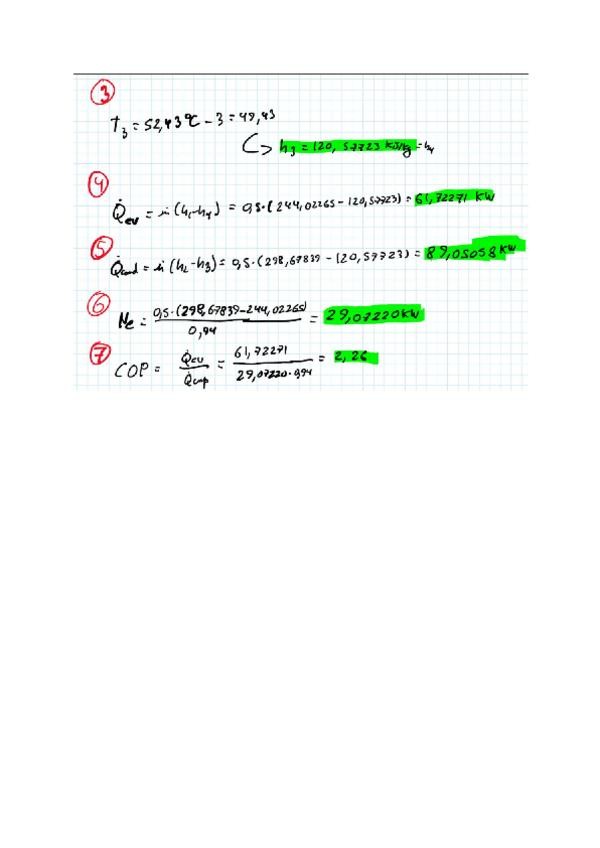 3
T3 = 52,43°C - 3 = 49,43
h3 = 120,57723 kJ/kg = h4
4
Q̇ev = ṁ (h1-h4) = 0,5·(244,02265 - 120,57723) = 61,72271 kW
5
Q̇cond = ṁ (h2-h3) = 0,5·(298,67839 - 120,57723) = 89,05058 kW
6
Ne = 0,5·(298,67839-244,02265) / 0,94 = 29,07220 kW
7
COP = Q̇ev / Q̇cmp = 61,72271 / 29,07220·0,94 = 2,26